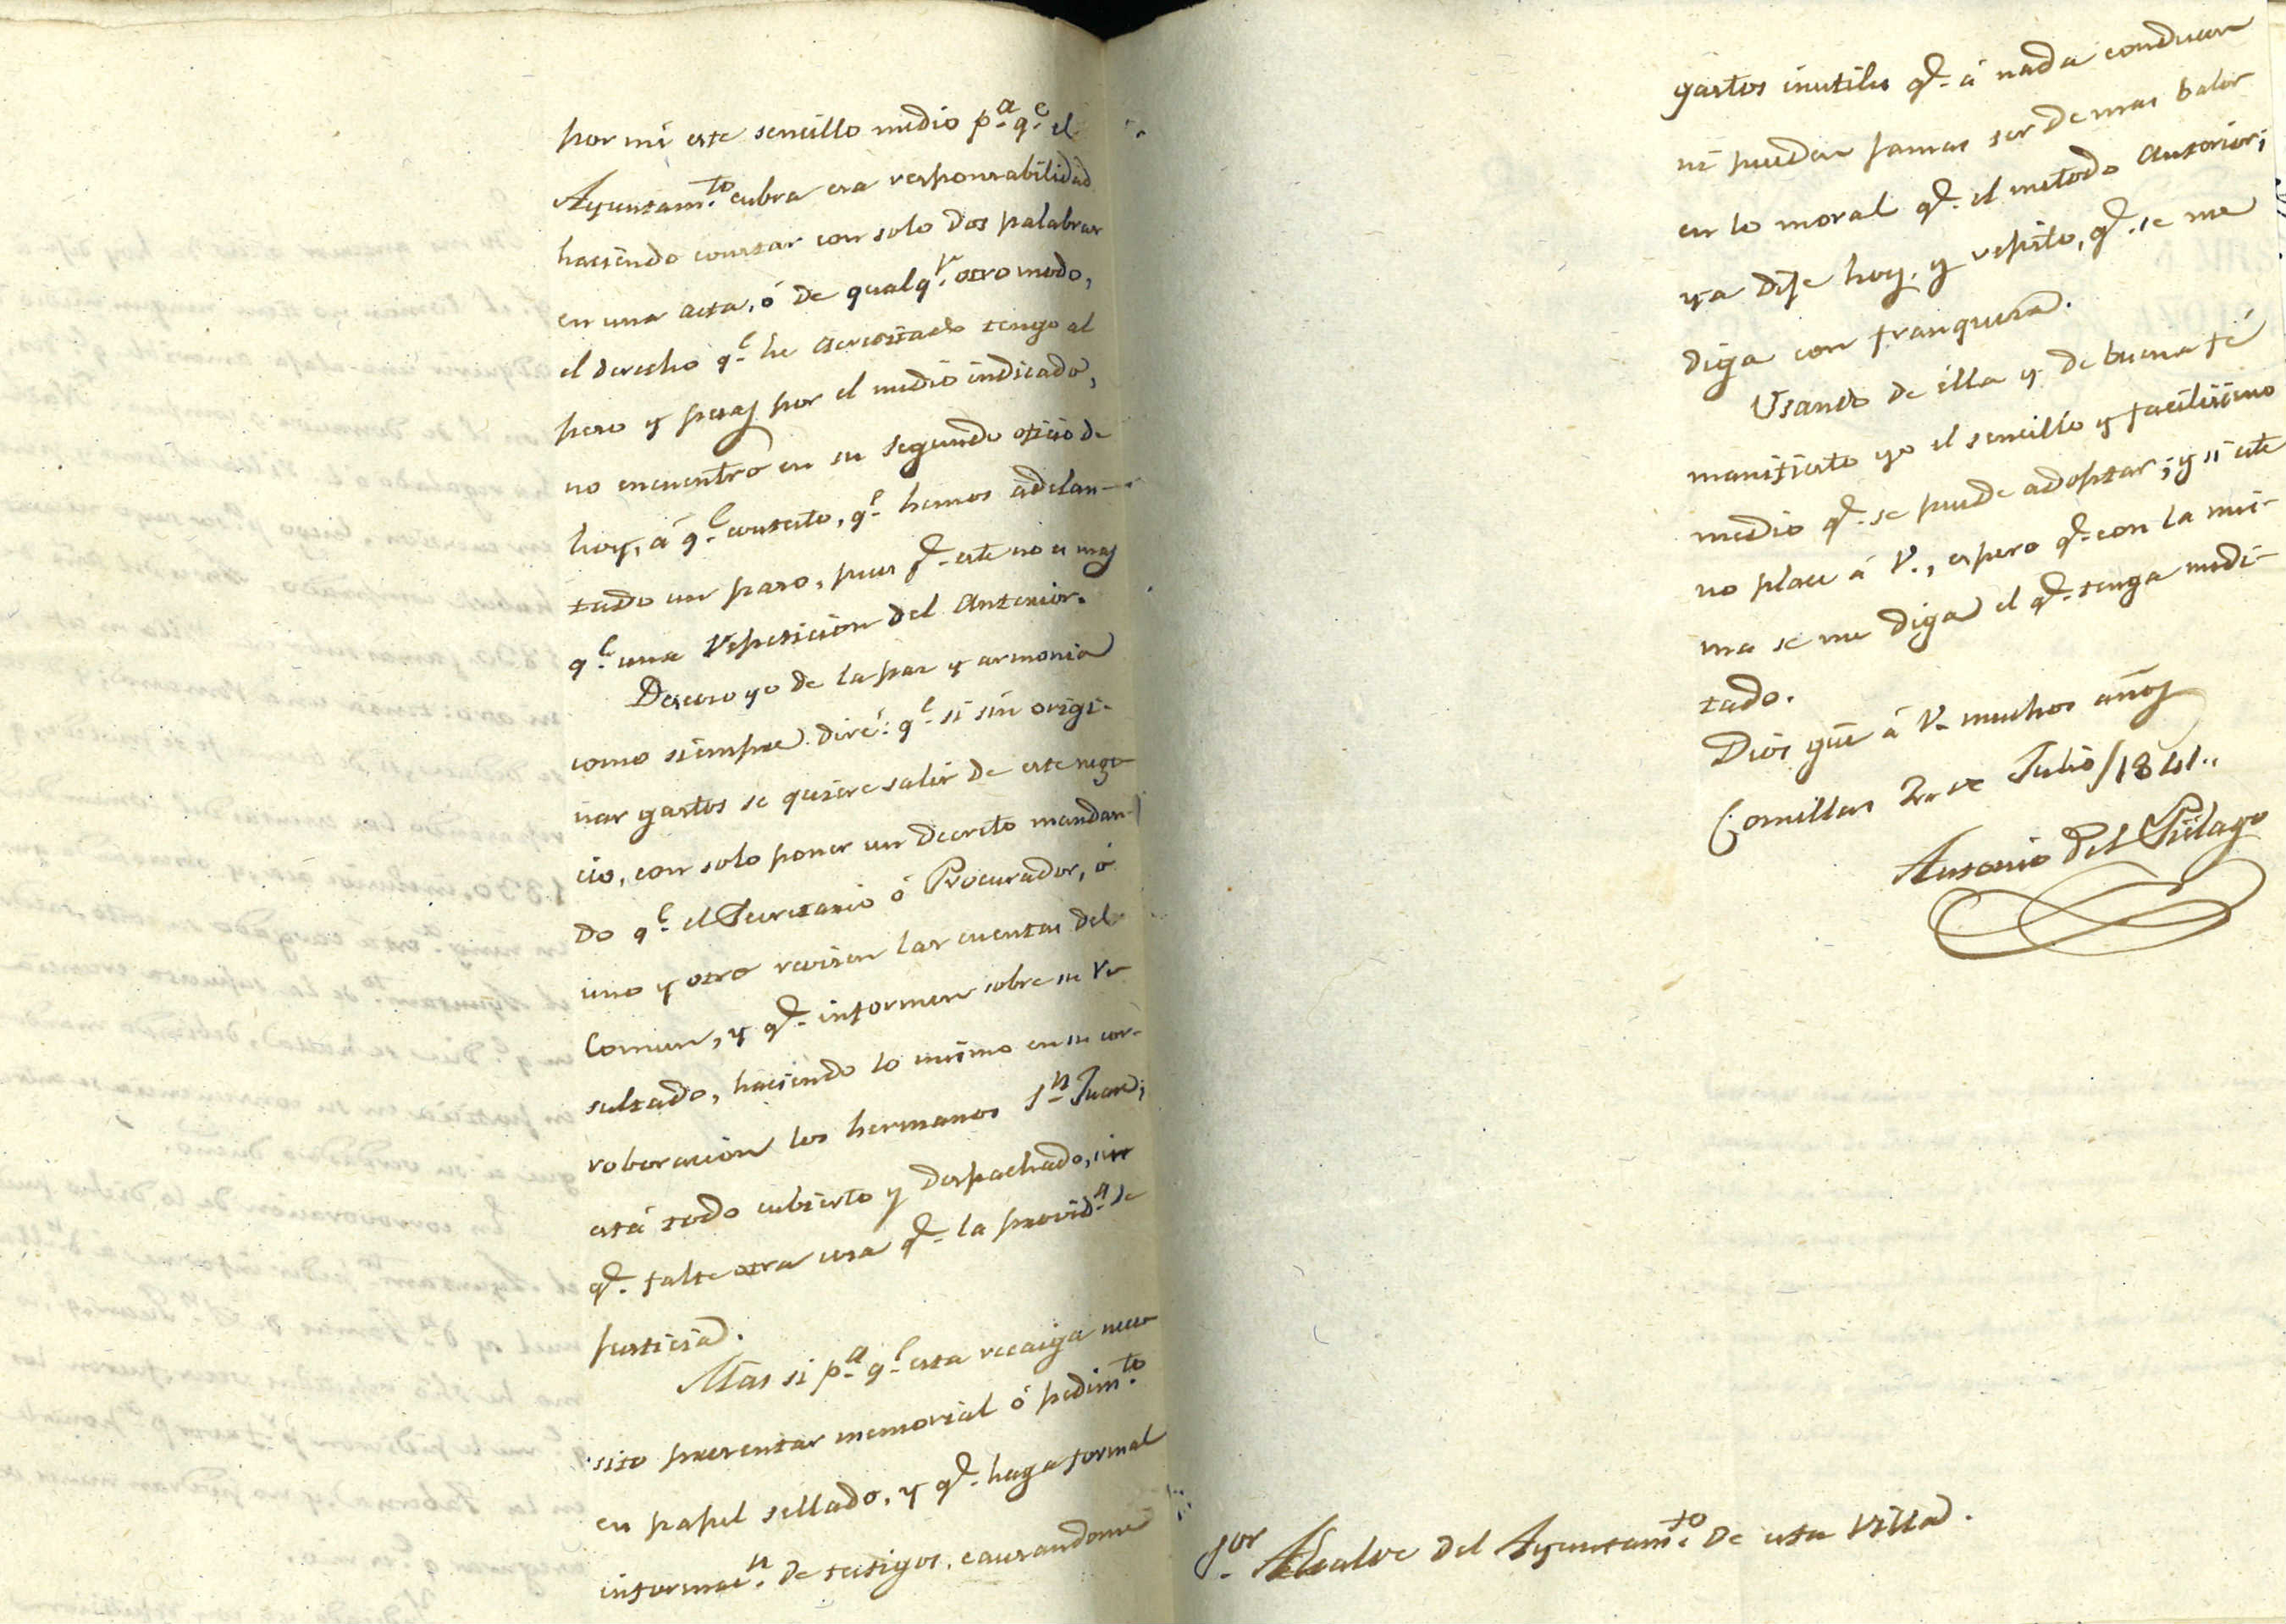 por mi este sencillo medio p.ª q.e el
Ayuntam.to cubra esa responsabilidad
haciendo constar con solo dos palabras
en una acta, ó de qualq.r otro modo,
el derecho q.e he acreditado tengo al
peso y pesas por el medio indicado,
no encuentro en su segundo oficio de
hoy, á q.e contesto, q.e hemos adelan-
tado un paso, pues q.e este no es mas
q.e una repeticion del anterior.
Deseoso yo de la paz y armonia
como siempre. diré: q.e si sin origi-
nar gastos se quiere salir de este nego-
cio, con solo poner un decreto mandan-
do q.e el Secretario ó Procurador, ó
uno y otro revisen las cuentas del
Comun, y q.e informen sobre su re-
sultado, haciendo lo mismo en su cor-
roboracion los hermanos S.n Juan;
está todo cubierto y despachado, sin
q.e falte otra cosa q.e la provid.ª de
justicia.
Mas si p.ª q.e esta recaiga nece-
sito presentar memorial ó pedim.to
en papel sellado, y q.e haga formal
informac.n de testigos, causandome
gastos inutiles q.e á nada conducen
ni pueden jamas ser de mas balor
en lo moral q.e el metodo anterior;
ya dije hoy, y repito, q.e se me
diga con franqueza.
Usando de ella y de buena fé
manifiesto yo el sencillo y facilisimo
medio q.e se puede adoptar; y si este
no place á V., espero q.e con la mis-
ma se me diga el q.e tenga medi-
tado.
Dios güe á V. muchos años
Comillas 2,, de Julio/1841,,
Antonio del Piélago
S.or Alcalde del Ayuntam.to de esta Villa.